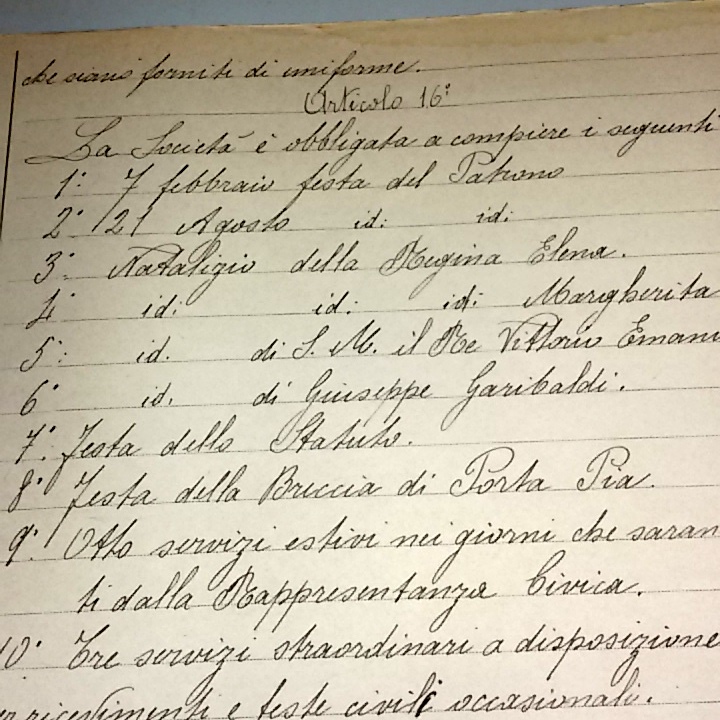 che siano forniti di uniforme.
Articolo 16°
La Società è obbligata a compiere i seguenti
1°: 7 febbraio festa del Patrono
2° 21 Agosto id: id:
3° Natalizio della Regina Elena.
4° id: id: id: Margherita
5°: id. di S. M. il Re Vittorio Emanu
6° id. di Giuseppe Garibaldi.
7° Festa dello Statuto.
8° Festa della Breccia di Porta Pia.
9° Otto servizi estivi nei giorni che saran
ti dalla Rappresentanza Civica.
10° Tre servizi straordinari a disposizione
er ricevimenti e feste civili occasionali.